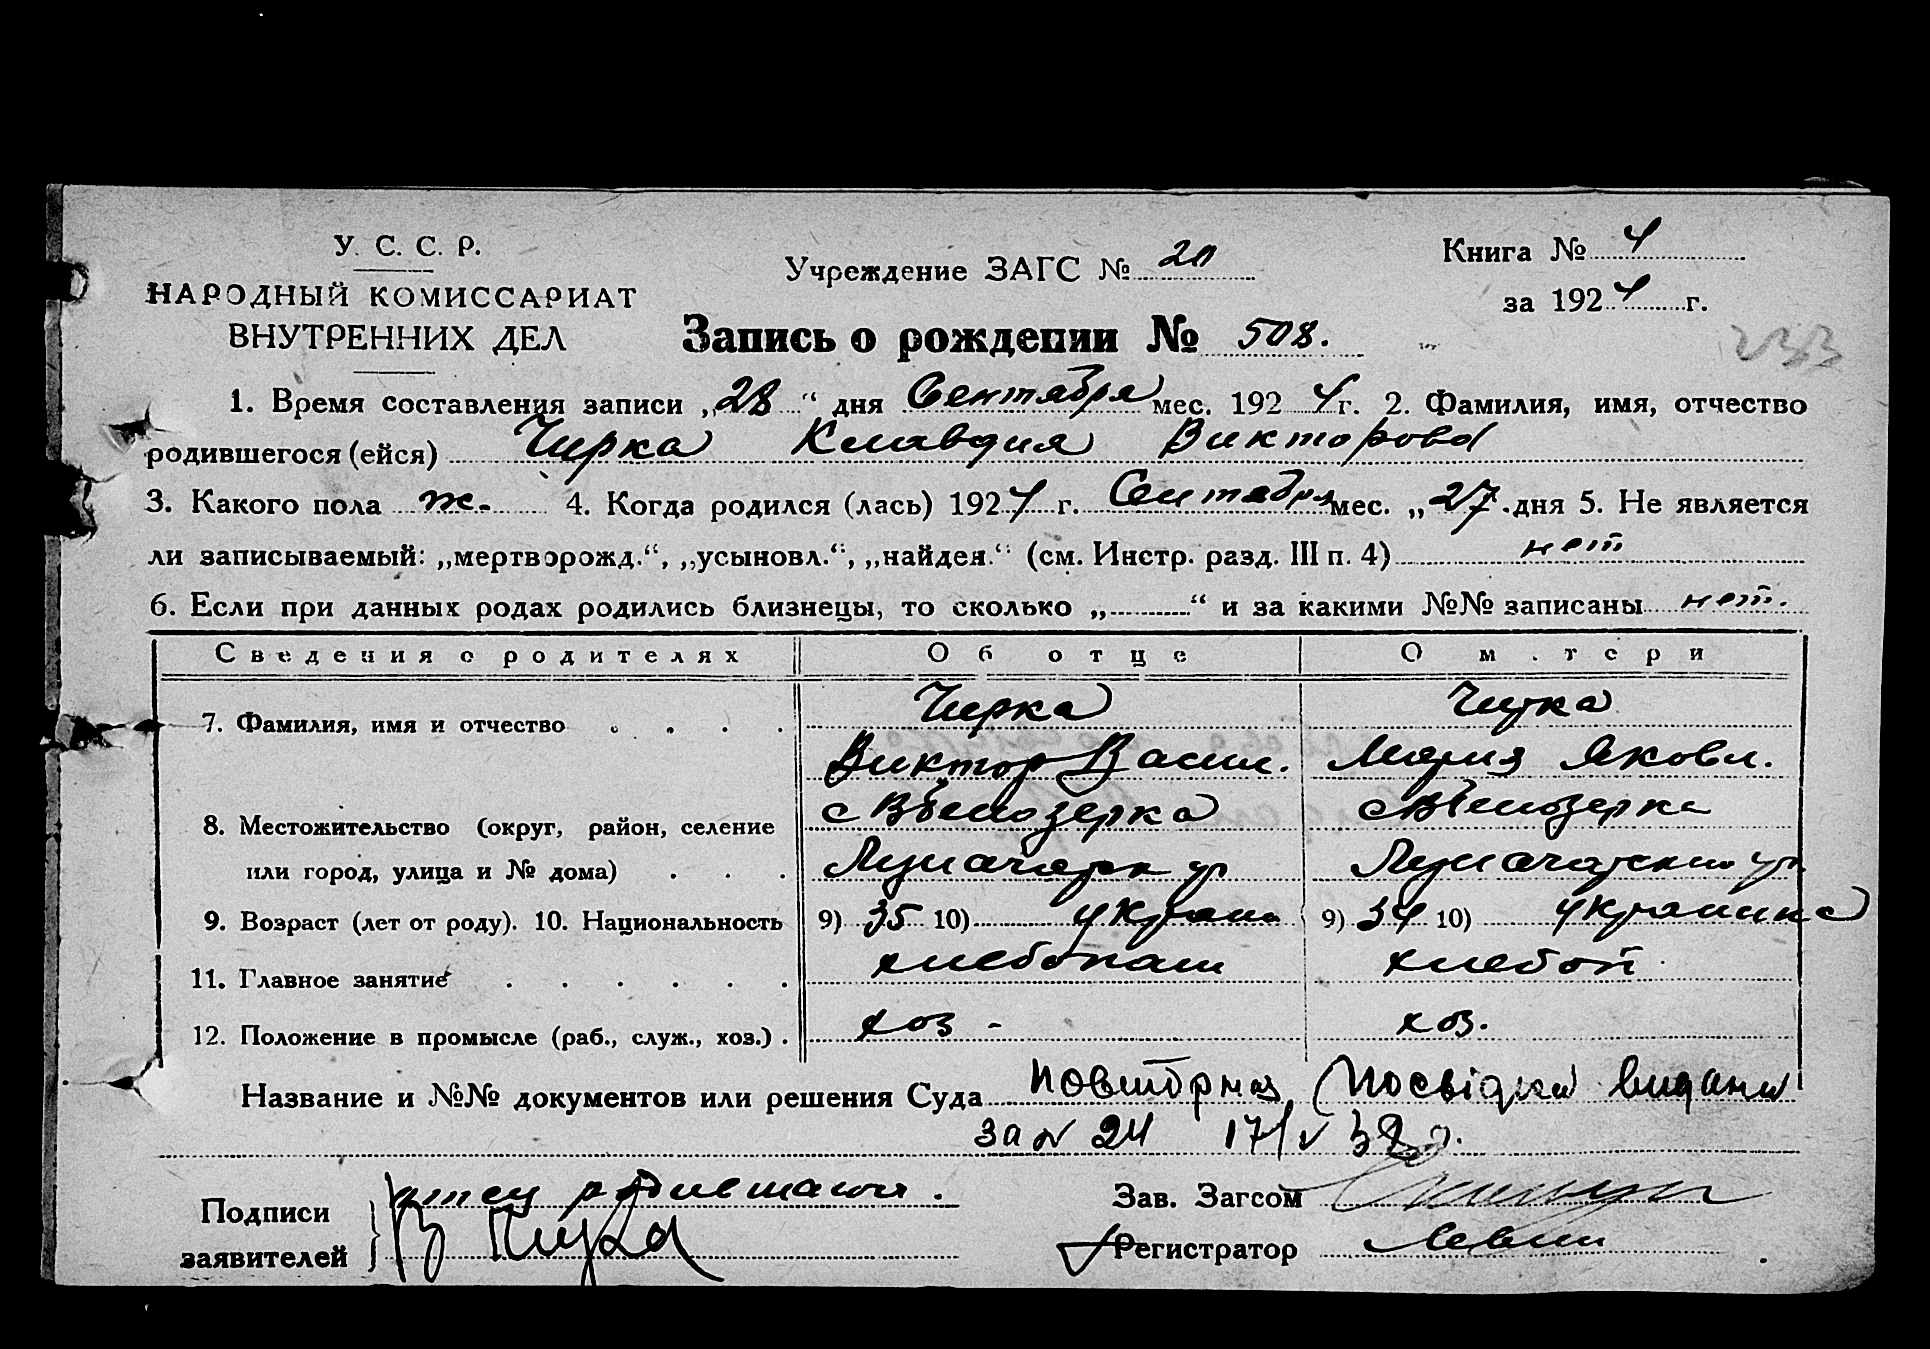 У. С. С. Р.
НАРОДНЫЙ КОМИССАРИАТ
ВНУТРЕННИХ ДЕЛ
Учреждение ЗАГС № 20
Книга № 4
за 1924 г.
Запись о рождении № 508.
233
1. Время составления записи „28“ дня Сентября мес. 1924 г. 2. Фамилия, имя, отчество
родившегося (ейся) Чирка Клавдия Викторовa
3. Какого пола ж. 4. Когда родился (лась) 1924 г. Сентября мес. „27.дня 5. Не является
ли записываемый: „мертворожд.“, „усыновл.“, „найден.“ (см. Инстр. разд. III п. 4) нет
6. Если при данных родах родились близнецы, то сколько „............“ и за какими №№ записаны нет.
Сведения о родителях Об отце О матери
7. Фамилия, имя и отчество . . . . Чирка Чирка
Виктор Васил. Мария Яковл.
8. Местожительство (округ, район, селение с Белозерка с Белозерка
или город, улица и № дома) . . . Луначарск ул Луначарский ул.
9. Возраст (лет от роду). 10. Национальность 9) 35 10) украин 9) 34 10) украинка
11. Главное занятие . . . . . . хлебопаш хлебоп
12. Положение в промысле (раб., служ., хоз.) . хоз - хоз.
Название и №№ документов или решения Суда повиторна посвідка видана
за № 24 17/V 32 р.
Подписи
заявителей
отец
В Чирка
Зав. Загсом
Регистратор Левин